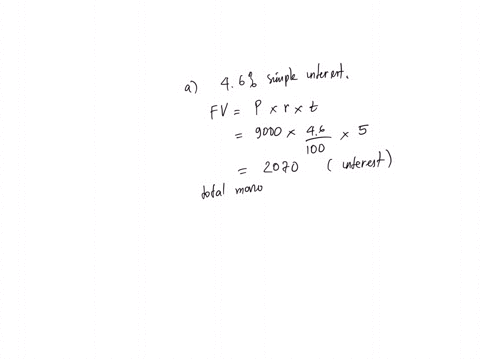 a) 4.6% simple interest.
FV = P x r x t
= 9000 x 4.6/100 x 5
= 2070 (interest)
total mono